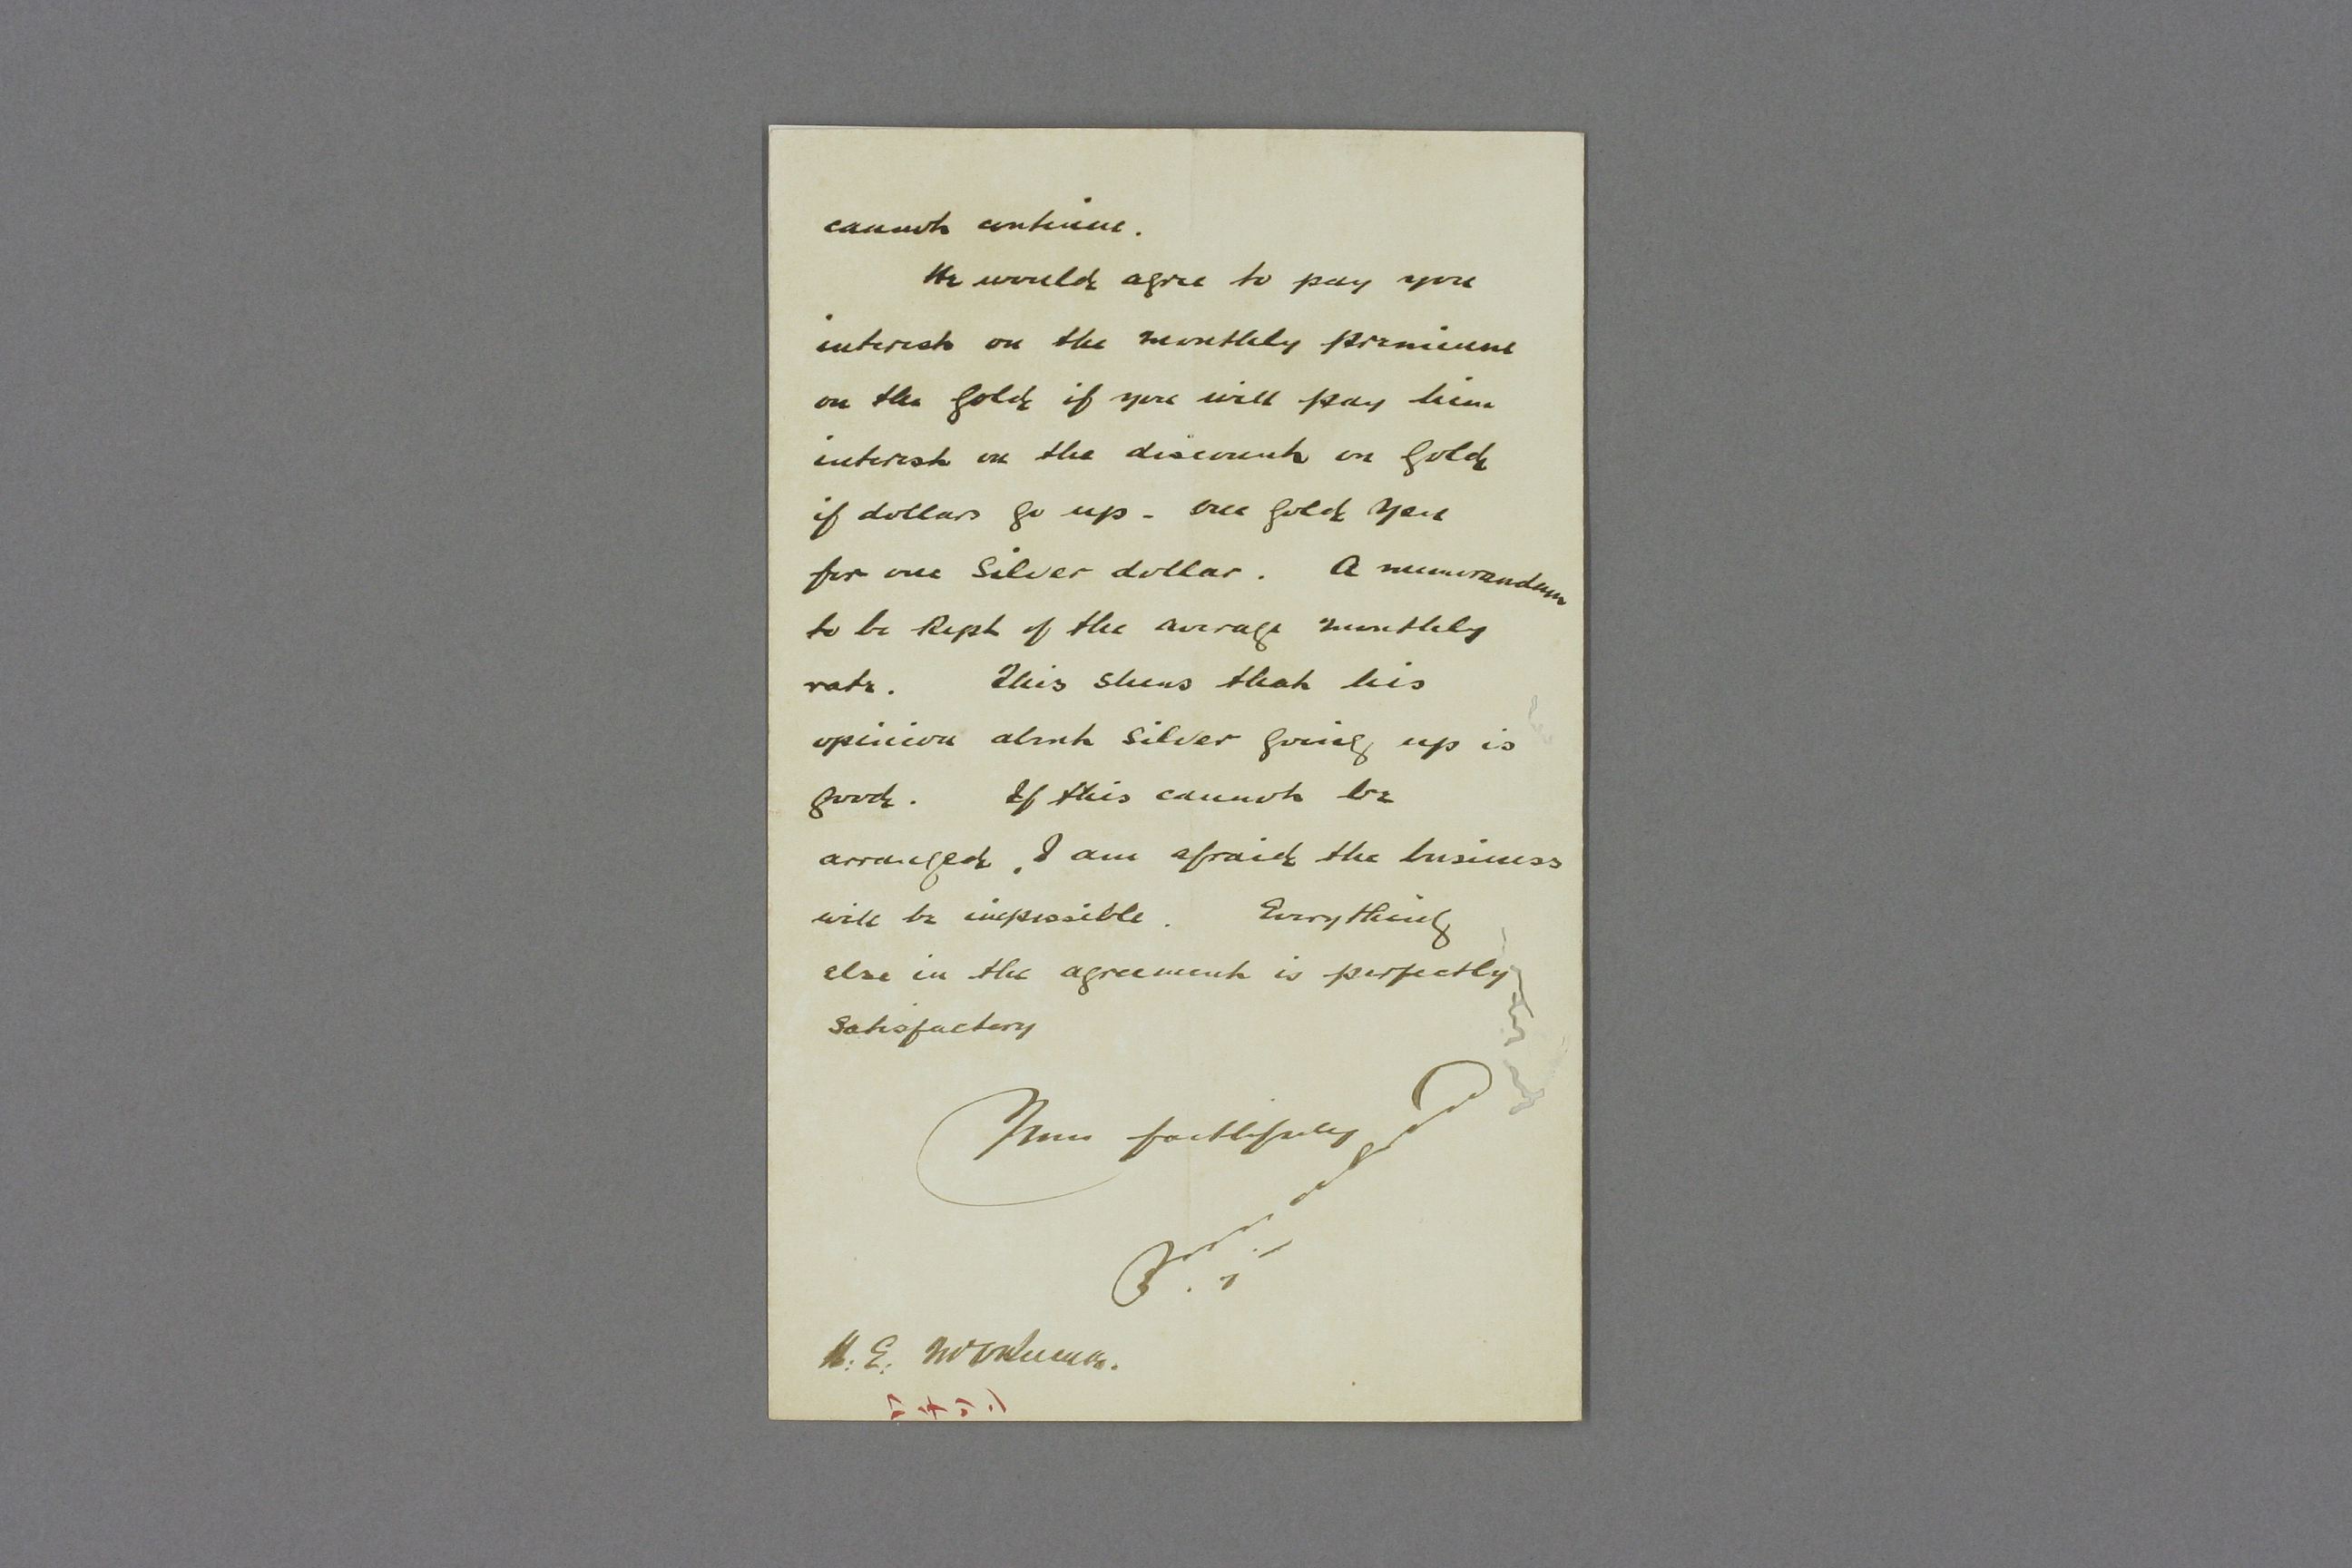 cannot continue.
He would agree to pay you
interest on the monthly premium
on the gold if you will pay him
interest on the discount on gold
if dollars go up - one gold Yen
for one Silver dollar. A memorandum
to be Kept of the average monthly
rate. This shews that his
opinion about Silver going up is
good. If this cannot be
arranged, I am afraid the business
will be impossible. Everything
else in the agreement is perfectly
Satisfactory
Yours faithfully
H. E.